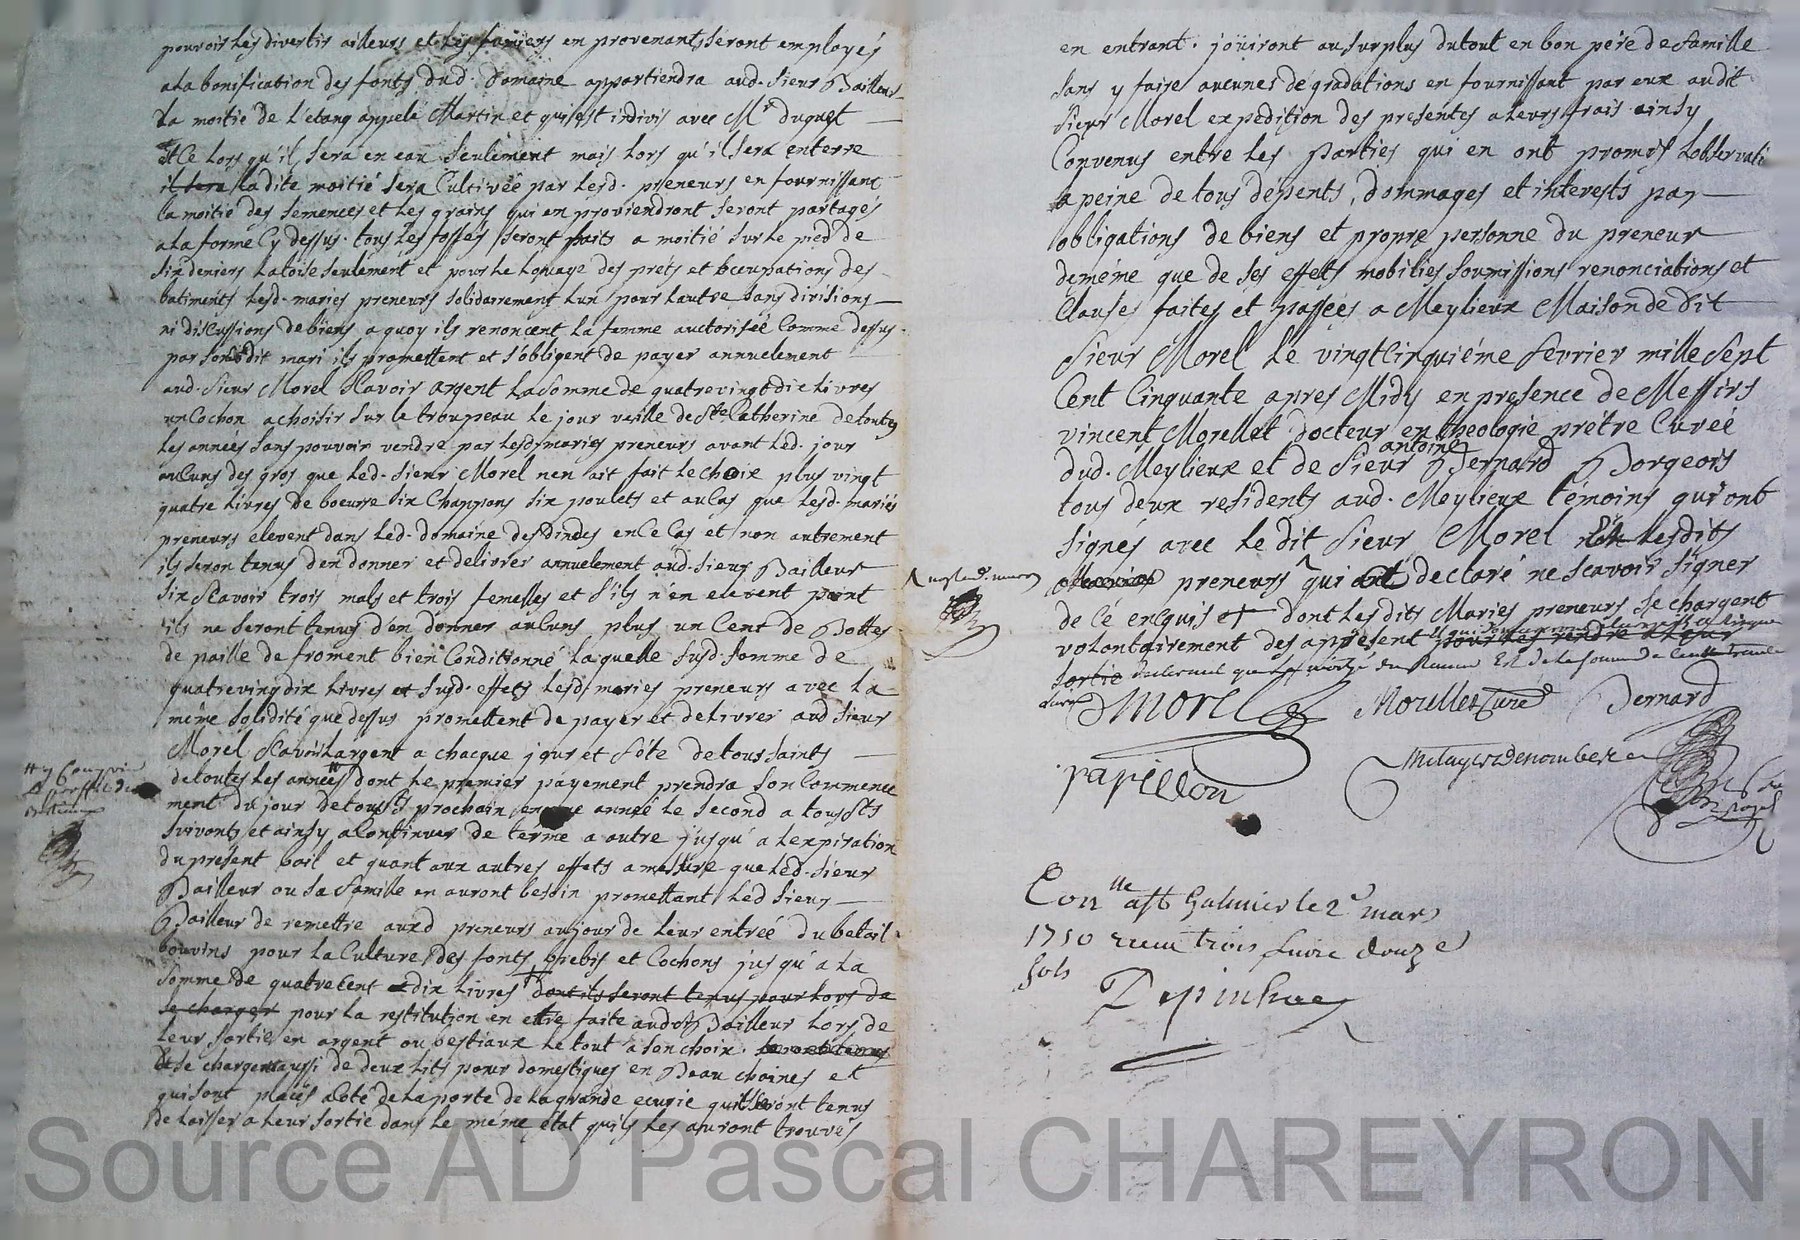 pouvoir les divertir ailleurs et les fumiers en provenants seront employés
a la bonification des fonts dud. domaine appartiendra aud. sieur Bailleur
La moitié de l'etang appelé Martin et qui est indivis avec Mr duguet
et ce lors qu'il sera en eau seulement mais lors qu'il sera enterre
il sera ladite moitié sera Cultivée par lesd. preneurs en fournissant
la moitié des semences et les grains qui en proviendront seront partagés
a la forme Cy dessus. tous les fossés seront faits a moitié sur le pied de
six deniers la toise seulement et pour le louage des prets et occupations des
batiments lesd. maries preneurs solidairement l'un pour l'autre sans divisions
ni discussions de biens a quoy ils renoncent la femme auctorisée Comme dessus
par son dit mari ils promettent et s'obligent de payer annuelement
aud. sieur Morel scavoir argent la somme de quatre vingt dix livres
un Cochon a choisir sur le troupeau le jour veille de Ste Catherine de toutes
les années sans pouvoir vendre par lesd. maries preneurs avant led. jour
auCuns des gros que led. sieur Morel n'en ait fait le choix plus vingt
quatre livres de boeurre six Chappons six poulets et au Cas que lesd. mariés
preneurs elevent dans led. domaine des Dindes en Ce Cas et non autrement
ils seron tenus d'en donner et delivrer annuelement aud. sieur Bailleur
six scavoir trois mals et trois femelles et s'ils n'en elevent point
ils ne seront tenus d'en donner auCuns plus un Cent de Bottes
de paille de froment bien Conditionné laquelle susd. somme de
quatre vingt dix livres et susd. effets lesd. maries preneurs avec la
même solidité que dessus promettent de payer et delivrer aud sieur
Morel scavoir l'argent a chacque jour et féte de tous saints
de toutes les années dont le premier payement prendra son Commence
ment du jour de touss.ts prochain en une année le second a touss.ts
suivants et ainsy a Continuer de terme a autre jusqu'a l'expiration
du présent bail et quant aux autres effets a mesure que led. sieur
Bailleur ou sa famille en auront besoin promettant led sieur
Bailleur de remettre auxd preneurs au jour de leur entrée du betail
bouvins pour la Culture des fonts brebis et Cochons jusqu'a la
somme de quatre Cent dix livres dont ils seront tenus pour lors de
se charger pour la restitution en etre faite aud. Bailleur lors de
leur sortie en argent ou bestiaux le tout a son choix
se chargent aussi de deux lits pour domestiques en Beau chaines et
qui sont placés a Coté de la porte de la grande ecurie qu'ils seront tenus
de laisser a leur sortie dans le même état qu'ils les auront trouvés
en entrant. joüiront au surplus du tout en bon pére de famille
sans y faire aucunes dégradations en fournissant par eux audit
sieur Morel expédition des presentes a leurs frais ainsy
Convenus entre les Parties qui en ont promis l'observati
a peine de tous dépents, dommages et interests par
obligations de biens et propre personne du preneur
deméme que de ses effets mobilies soumissions renonciations et
Clauses faites et passées a Meylieux Maison de Dit
Sieur Morel le vingtCinquiéme fevrier mille sept
Cent Cinquante apres Midy en presence de Messire
vincent Morellet docteur en theologie prétre Curéé
antoine
dud. Meylieux et de sieur Bernard Borgeois
tous deux residents aud. Meylieux témoins qui ont
signés avec le dit sieur Morel lesdits
preneurs qui ont declaré ne scavoir signer
de Cé enquis et dont lesdits Mariés preneurs se chargent
volontairement des apresent pour les rendre a leur
sortie
DMorel Morellet Curé Bernard
papillon
Con lle a St Galmier le 2e mars
1750 receu trois livre douze
sols
Depinhac
Source AD Pascal CHAREYRON